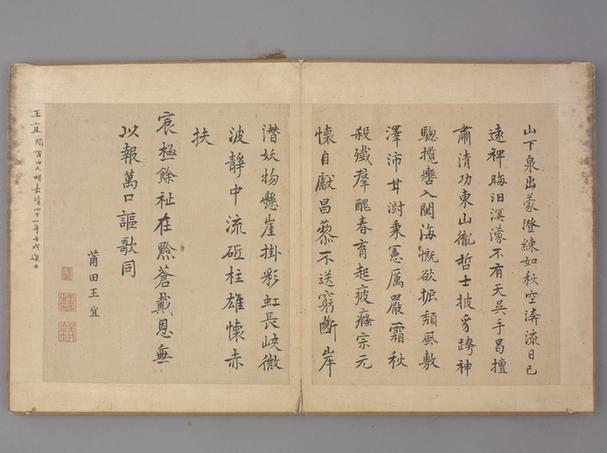 山下泉出蒙澄練如秋空濤流日已
遠裨海汩溟濛不有天吳手曷擅
肅清功東山徹哲士披豸跨神
驄攬轡入閩海慨欲振頹風敷
澤沛甘澍秉憲厲嚴霜秋
殺殲羣醜春育起疲癃宗元
懷自獻昌黎不送窮斷岸
潛妖物懸崖掛彩虹長峽微
波靜中流砥柱雄懷赤
扶
宸極餘祉在黔蒼戴恩無
以報萬口謳歌同
莆田王宜
王宜 閩莆田人明嘉靖四十一年壬戌進士